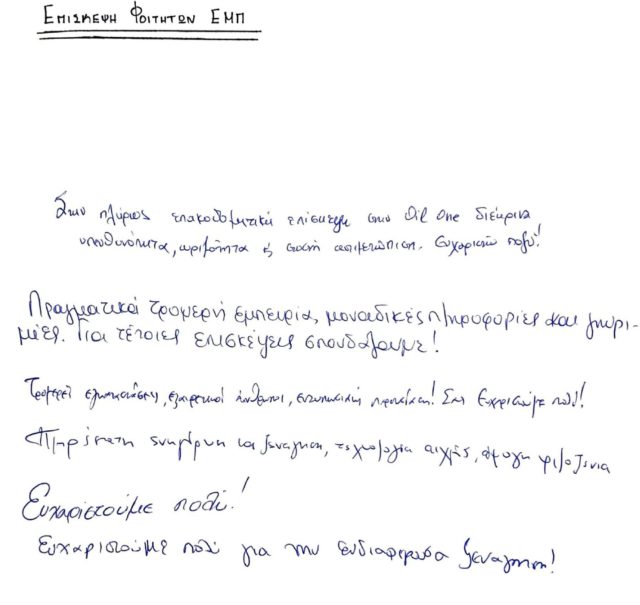 ΕΠΙΣΚΕΨΗ ΦΟΙΤΗΤΩΝ ΕΜΠ
Στην πλήρως εποικοδομητική επίσκεψη στην Oil One διέκρινα
υπευθυνότητα, ωριμότητα & σωστή αντιμετώπιση. Ευχαριστώ πολύ!
Πραγματικά τρομερή εμπειρία, μοναδικές πληροφορίες και γνωρι-
μίες. Για τέτοιες επισκέψεις σπουδάζουμε!
Τρομερές εγκαταστάσεις, εξαιρετικοί άνθρωποι, εντυπωσιακή! Σας Ευχαριστούμε πολύ!
Πληρέστατη ενημέρωση και ξενάγηση, τεχνολογία αιχμής, άψογη φιλοξενία
Ευχαριστούμε πολύ!
Ευχαριστούμε πολύ για την ενδιαφέρουσα ξενάγηση!